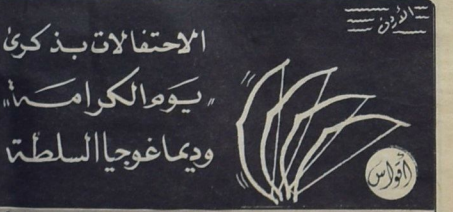 الأردن
الاحتفالات بذكرى
"يوم الكرامة"
وديماغوجيا السلطة
أقواس